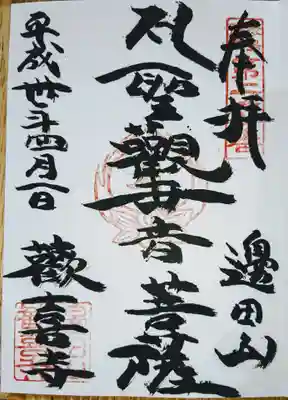 奉拝
邊田山
聖觀世音菩薩
平成丗年四月一日
歡喜寺